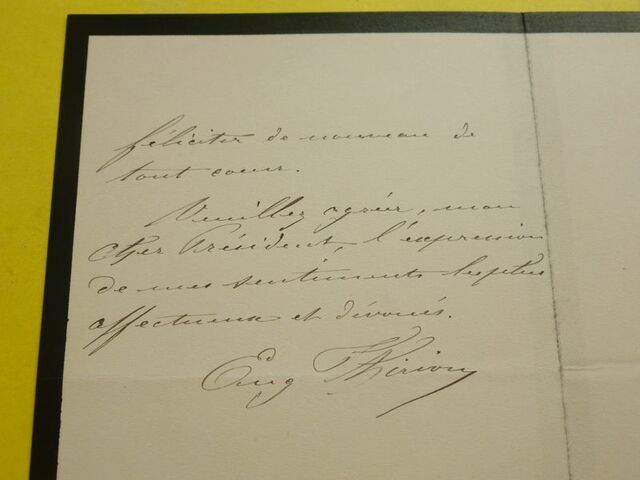 féliciter de nouveau de
tout coeur.
Veuillez agréer, mon
cher Président, l'expression
de mes sentiments les plus
affectueux et dévoués.
Eug Thirion